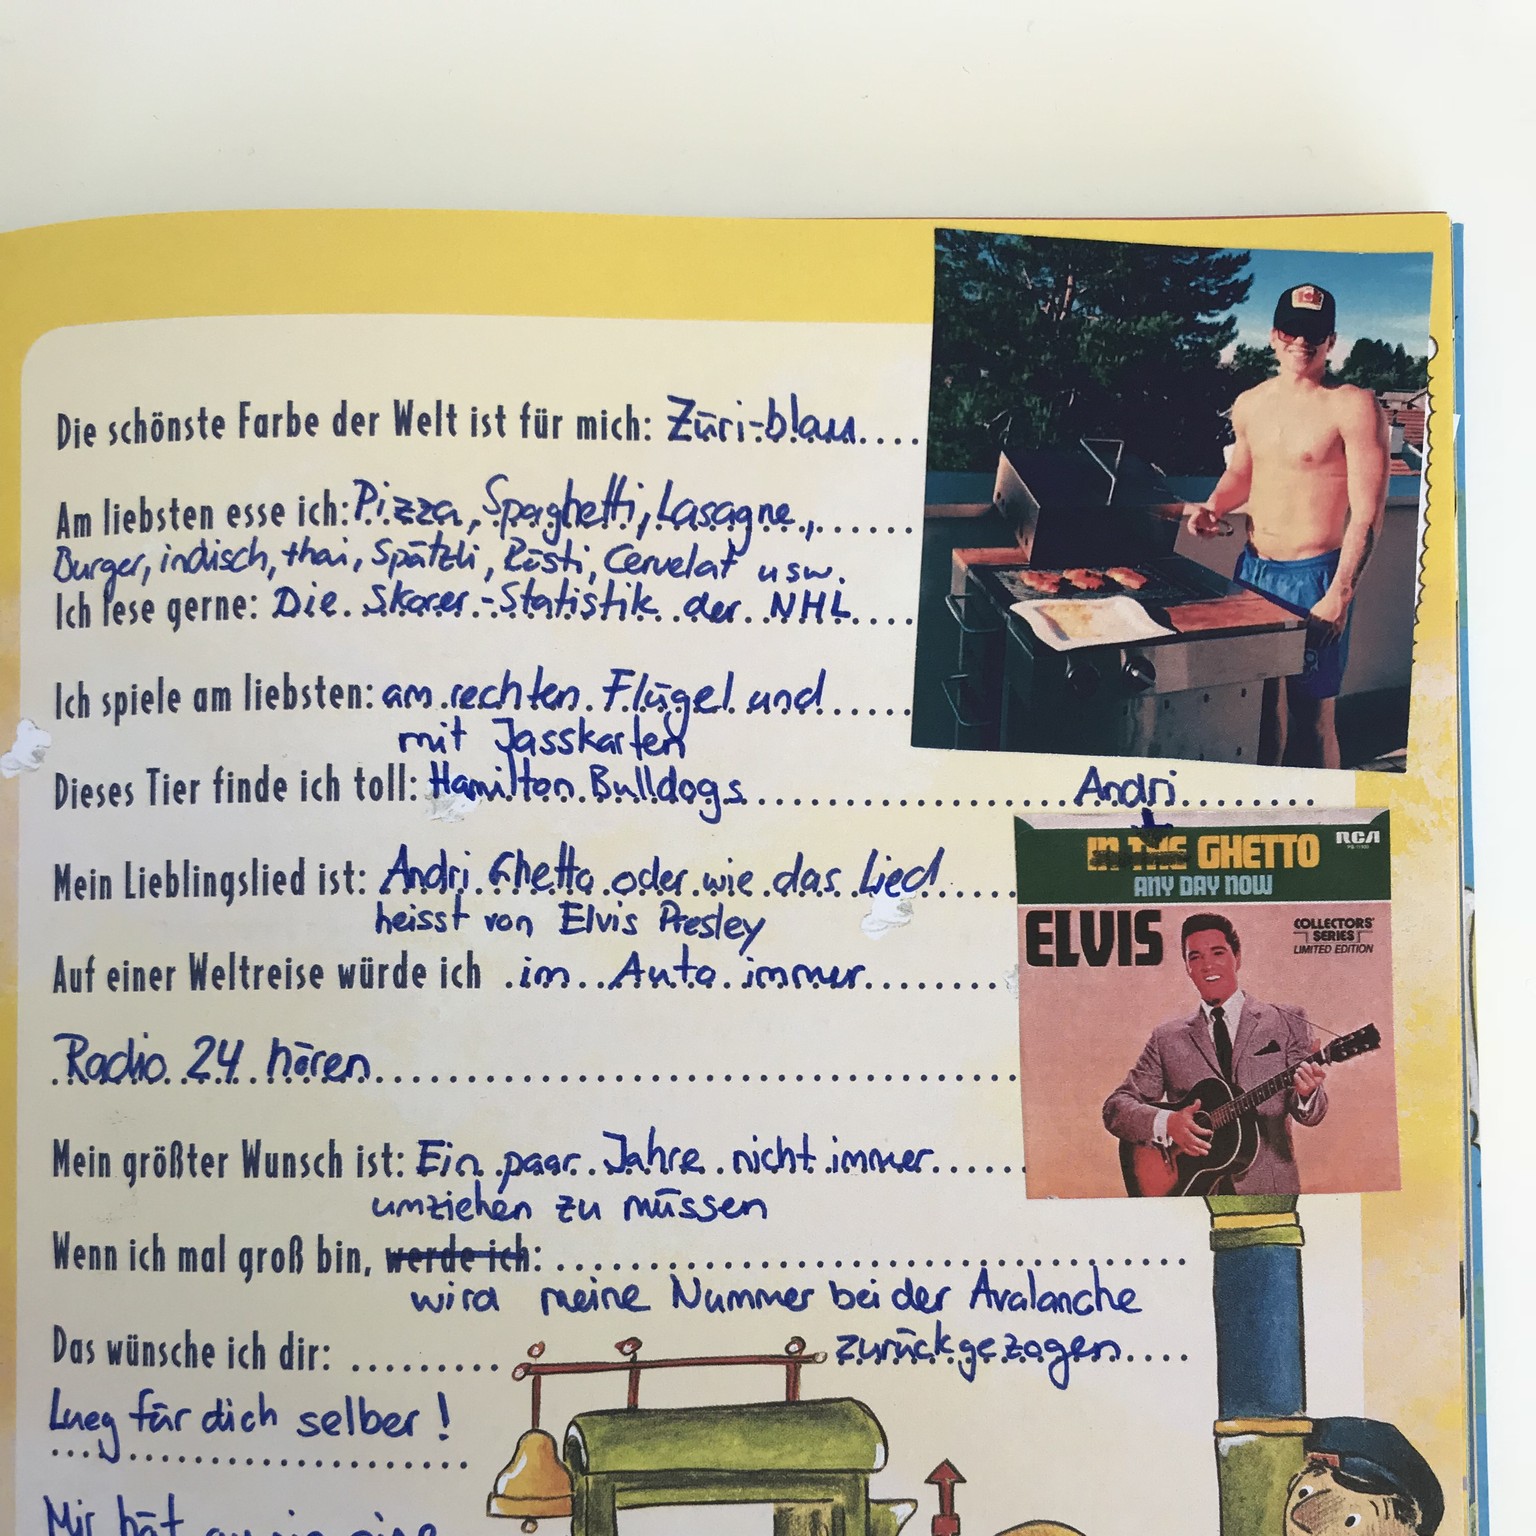 Die schönste Farbe der Welt ist für mich: Züri-blau
Am liebsten esse ich: Pizza, Spaghetti, Lasagne,
Burger, indisch, thai, Spätzli, Rösti, Cervelat usw.
Ich lese gerne: Die Skorer-Statistik der NHL
Ich spiele am liebsten: am rechten Flügel und
mit Jasskarten
Dieses Tier finde ich toll: Hamilton Bulldogs
Andri
IN THE GHETTO
RCA
ANY DAY NOW
ELVIS
COLLECTORS'
SERIES
LIMITED EDITION
Mein Lieblingslied ist: Andri Ghetto oder wie das Lied
heisst von Elvis Presley
Auf einer Weltreise würde ich im Auto immer
Radio 24 hören
Mein größter Wunsch ist: Ein paar Jahre nicht immer
umziehen zu müssen
Wenn ich mal groß bin, werde ich:
wird meine Nummer bei der Avalanche
zurückgezogen
Das wünsche ich dir:
Lueg für dich selber!
Mir hät